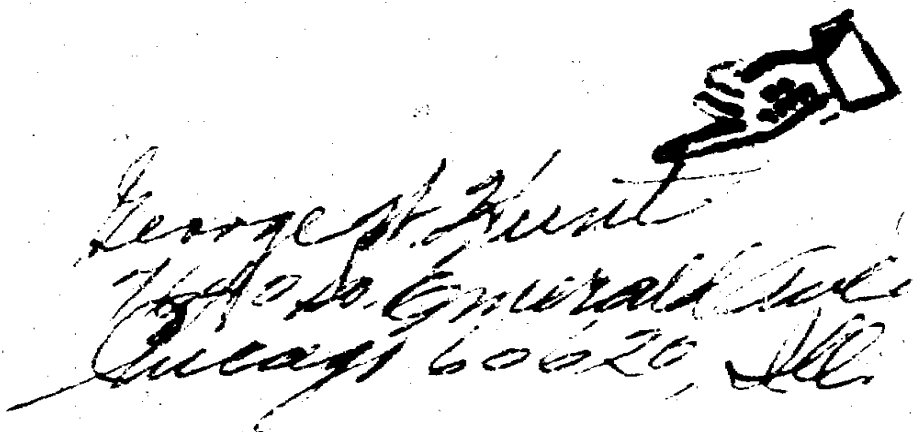 George W. Hunt
7640 So. Emerald Ave
Chicago 60620, Ill.